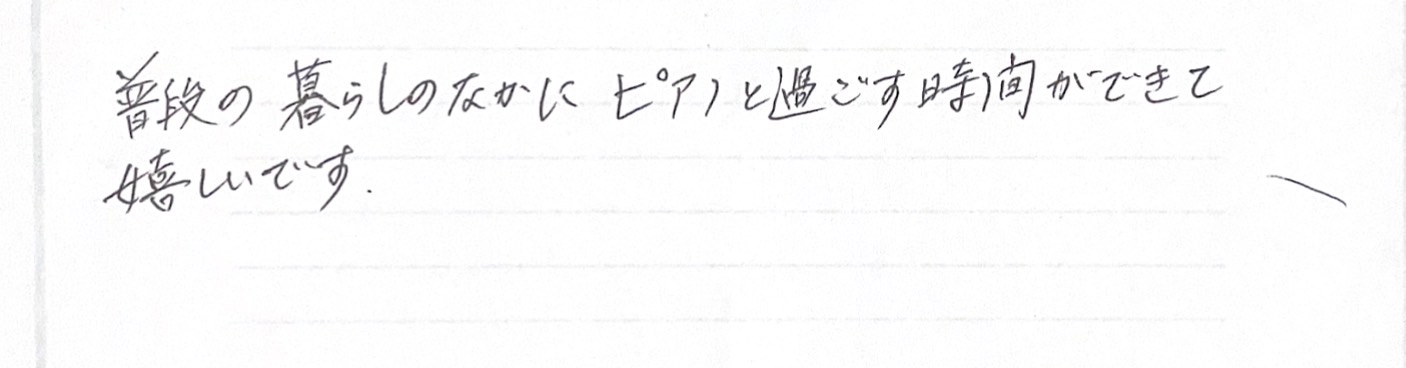 普段の暮らしのなかにピアノと過ごす時間ができて
嬉しいです.